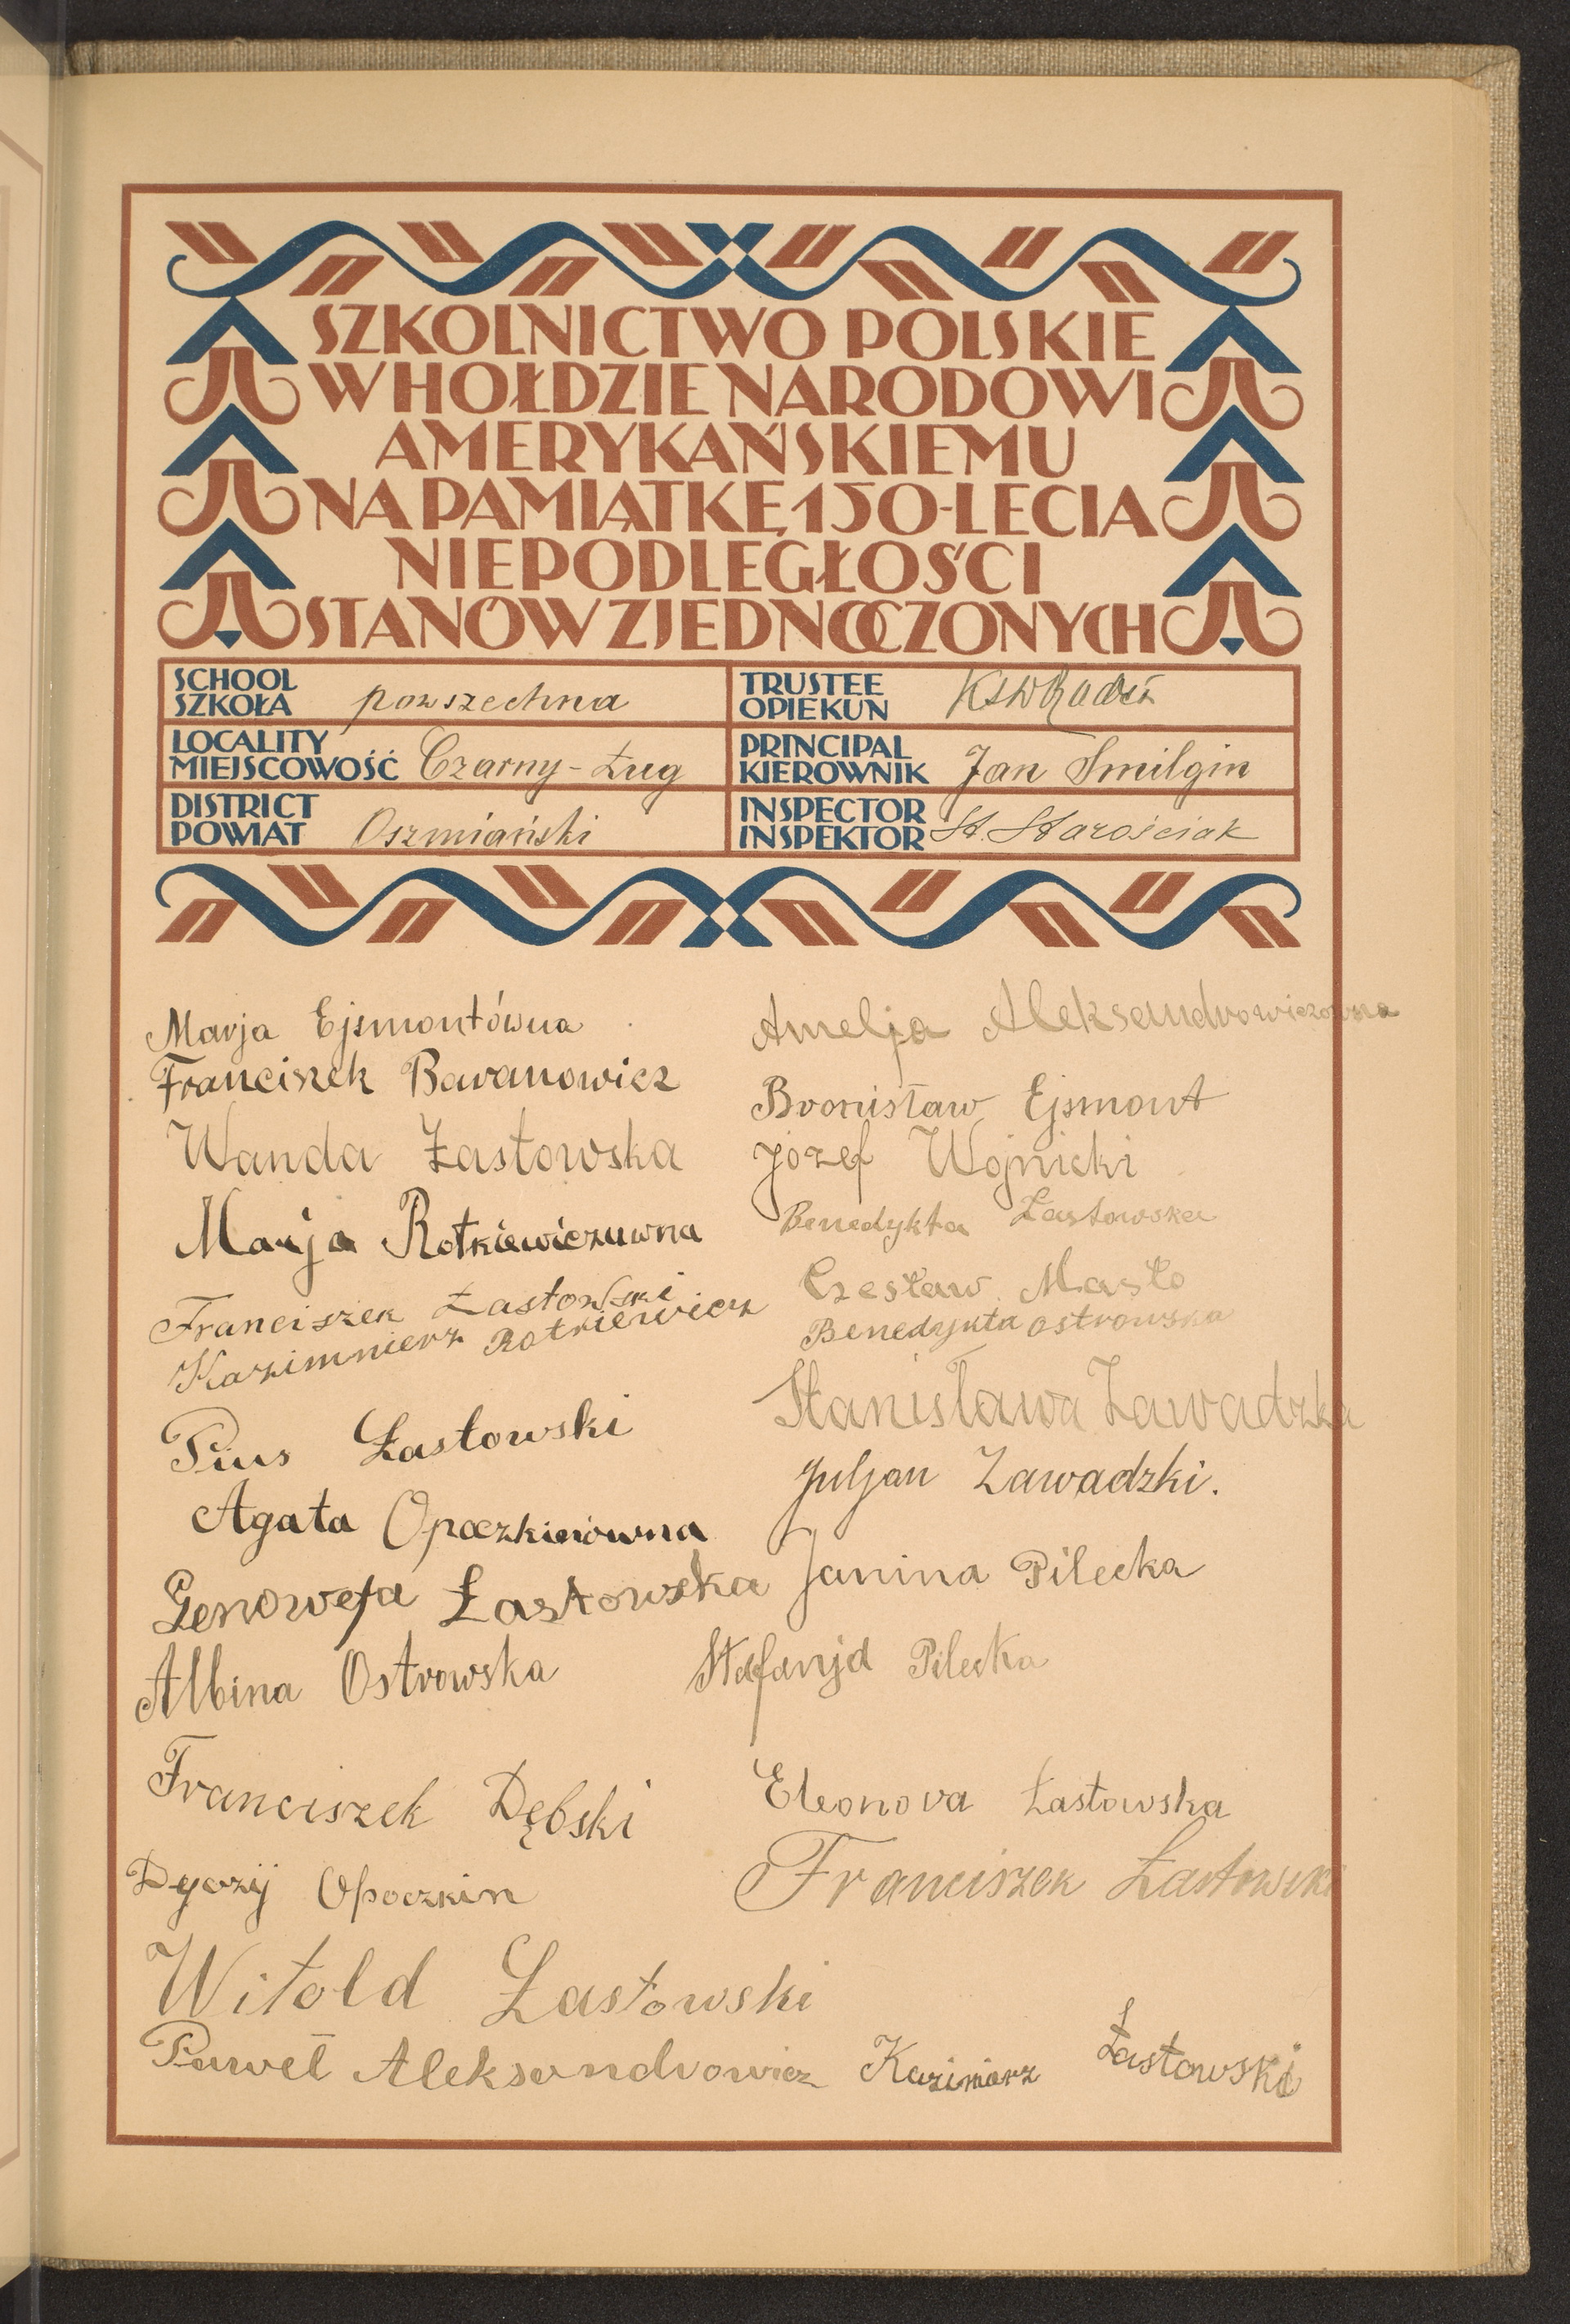 SZKOLNICTWO POLSKIE
W HOŁDZIE NARODOWI
AMERYKAŃSKIEMU
NA PAMIĄTKĘ 150-LECIA
NIEPODLEGŁOŚCI
STANÓW ZJEDNOCZONYCH
SCHOOL
SZKOŁA powszechna
TRUSTEE
OPIEKUN
LOCALITY
MIEJSCOWOŚĆ Czarny-Ług
PRINCIPAL
KIEROWNIK Jan Smilgin
DISTRICT
POWIAT Oszmiański
INSPECTOR
INSPEKTOR St. Starościak
Marja Ejsmontówna
Franciszek Baranowicz
Wanda Łastowska
Marja Rotkiewiczuwna
Franciszek Łastowski
Kazimnierz Rotkiewicz
Pius Łastowski
Agata Opoczkinówna
Genowefa Łastowska
Albina Ostrowska
Franciszek Dębski
Dyozij Opoczkin
Witold Łastowski
Paweł Aleksandrowicz
Amelja Aleksandrowiczowna
Bronisław Ejsmont
Józef Wojnicki
Benedykta Łastowska
Czesław Masło
Benedykta Ostrowska
Stanisława Zawadzka
Juljan Zawadzki.
Janina Pilecka
Stefanja Pilecka
Eleonora Łastowska
Franciszek Łastowski
Kazimierz Łastowski